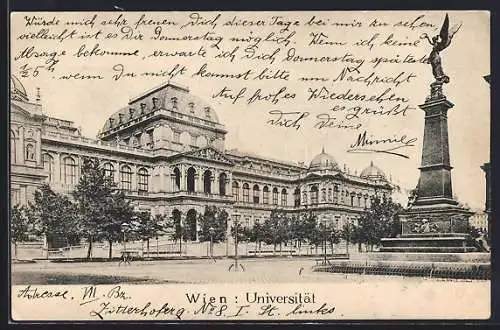 Würde mich sehr freuen Dich dieser Tage bei mir zu sehen
vielleicht ist es Dir Donnerstag möglich. Wenn ich keine
Absage bekomme, erwarte ich Dich Donnerstag spätestens
½ 5h wenn Du nicht kannst bitte um Nachricht
Auf frohes Wiedersehen
es grüßt
dich, deine
Minnie
Adresse VII Bz.
Zittnerhoferg No 8 I St. links
Wien : Universität